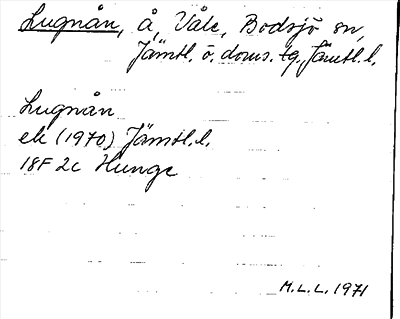 Lugnån, å, Våle, Bodsjö sn,
Jämtl. ö. doms. tg., Jämtl. l.
Lugnån
ek (1970) Jämtl. l.
18F 2c Hunge
M.L.L. 1971